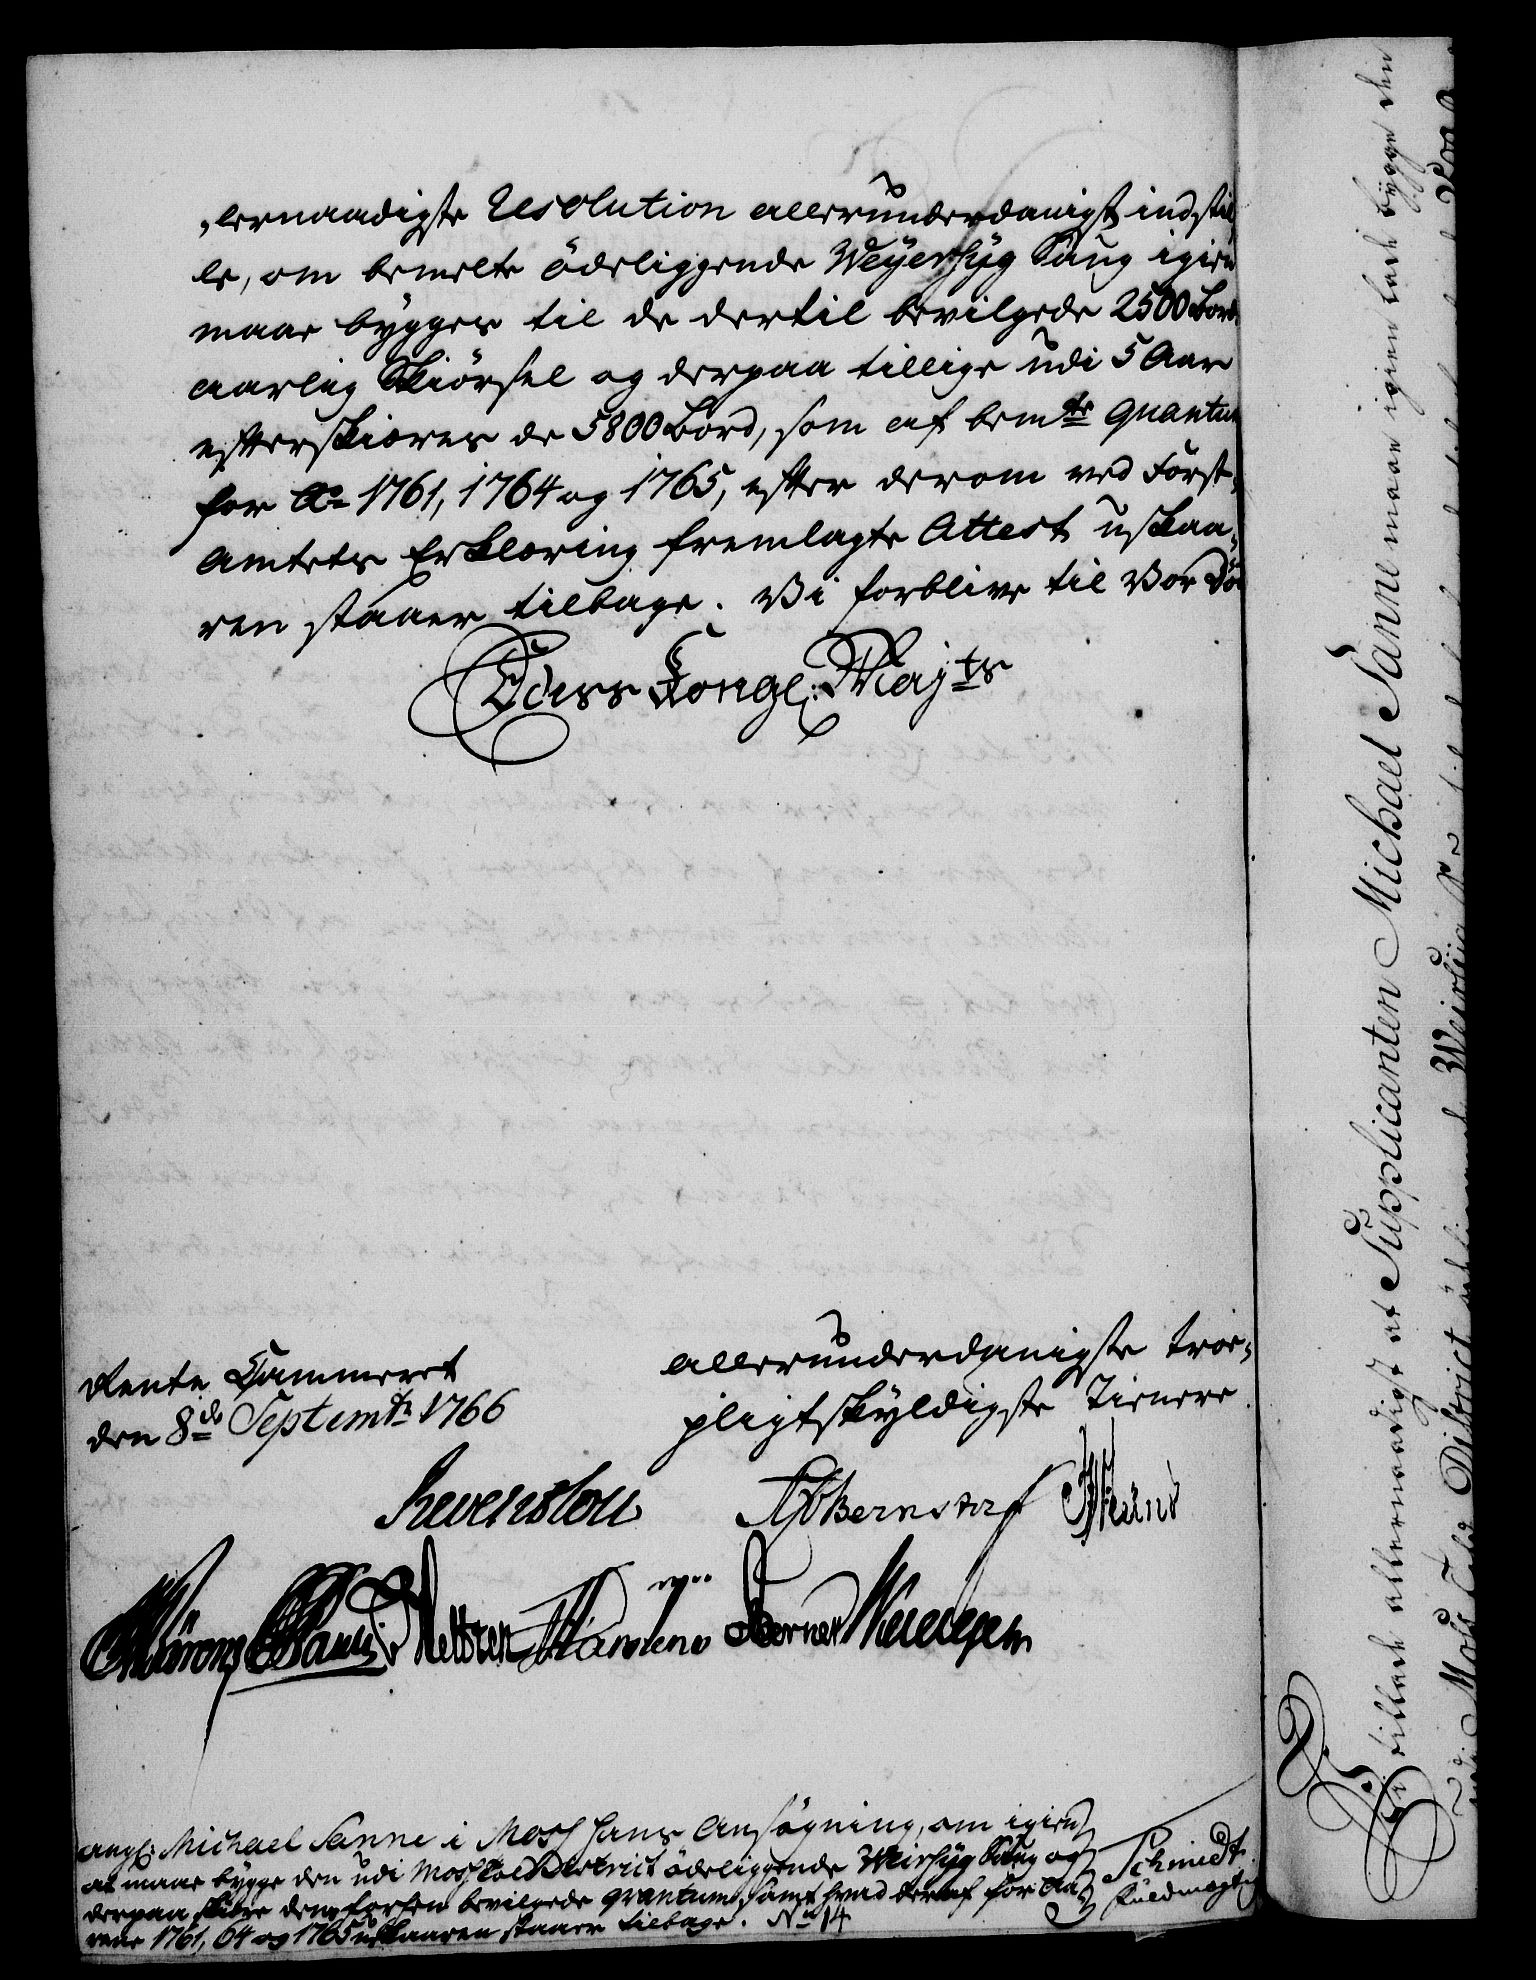 lernaadigste Resolution allerunderdanigst indstil-
le, om bemelte ödeliggende Weyersyg Saug igien
maae bygges til de dertil bevilgede 2500 Bord
aarlig Skiörsel og derpaa tillige udi 5 Aar
efterskiæres de 5800 Bord, som af bemte Quantum
for Ao 1761, 1764 og 1765, efter derom ved Forst-
Amtets Erklæring fremlagte Attest uskaa-
ren staaer tilbage. Vi forblive til Vor Dö
Eders Kongl: Mayts
Rente Cammeret
den 8de Septembr 1766
allerunderdanigste troe-
pligtskyldigste Tienere
Revenslou AGBernstorf
angl: Michael Sanne i Moss hans Ansögning, om igien
at maae bygge den udi Moss Told District ödeliggende Weirsyg Saug og
derpaa skiære den forhen bevilgede quantum, samt hvad deraf for Aa-
rene 1761, 64 og 1765 uskaaren staaer tilbage. No 14
Schmidt
Fuldmægtig
Vi tillade allernaadigst at Supplicanten Michael Sanne maae igien lade bygge den
udi Moss Told District ödeliggende Weirsyg